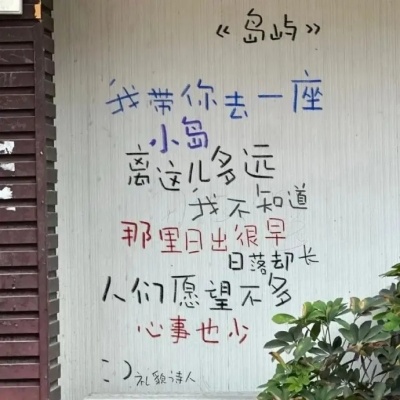 《岛屿》
我带你去一座
小岛
离这儿多远
我不知道
那里日出很早
日落却长
人们愿望不多
心事也少
:) 礼貌诗人